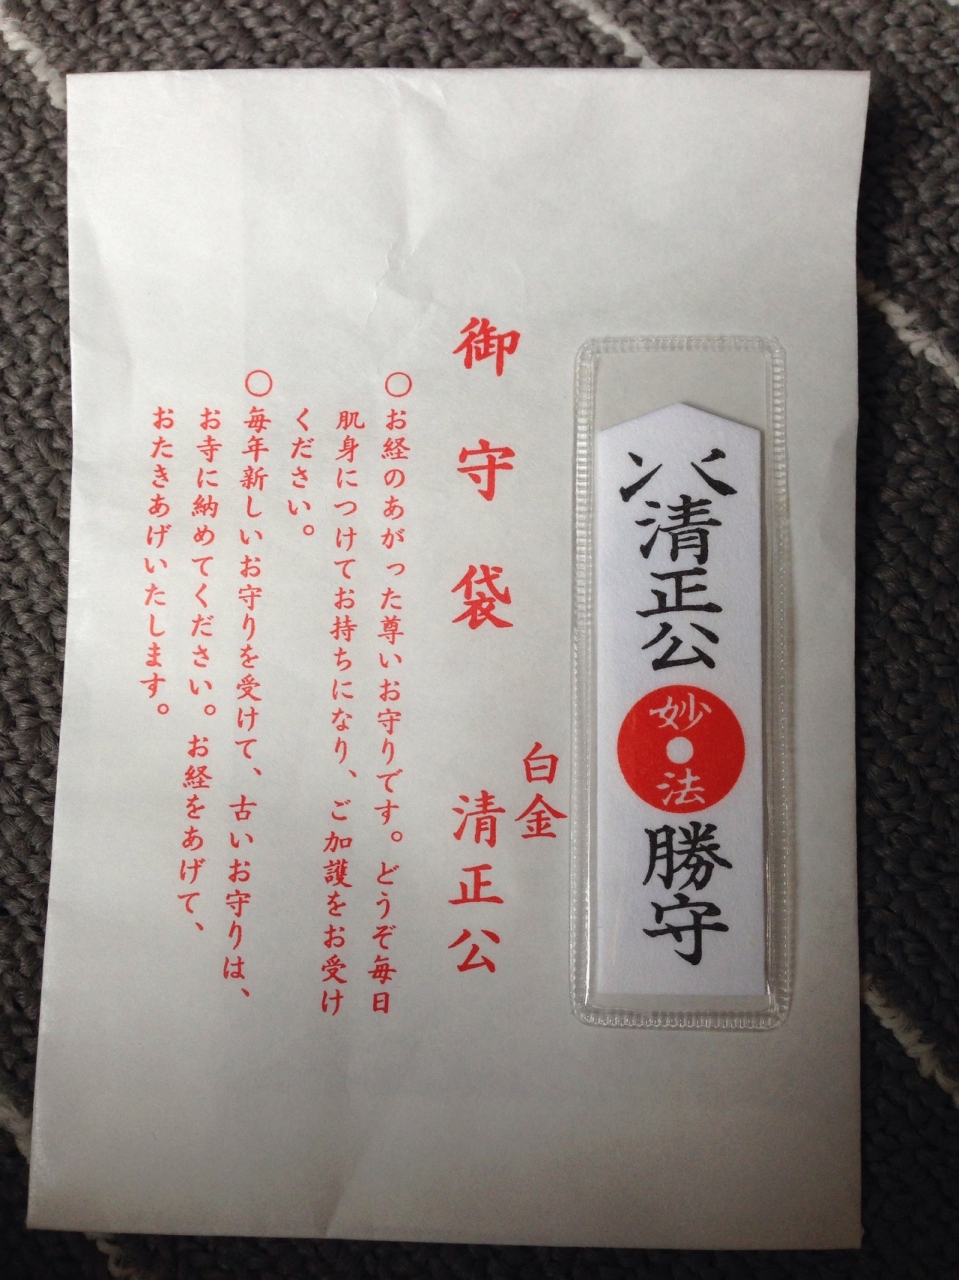 清正公
妙法
勝守
白金
清正公
御守袋
〇お経のあがった尊いお守りです。どうぞ毎日
肌身につけてお持ちになり、ご加護をお受け
ください。
〇毎年新しいお守りを受けて、古いお守りは、
お寺に納めてください。お経をあげて、
おたきあげいたします。